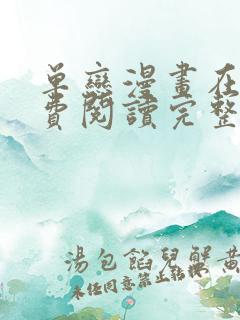 单恋漫畫在
費閱讀完整
湯包餡兒蟹黃
未经同意禁止转携